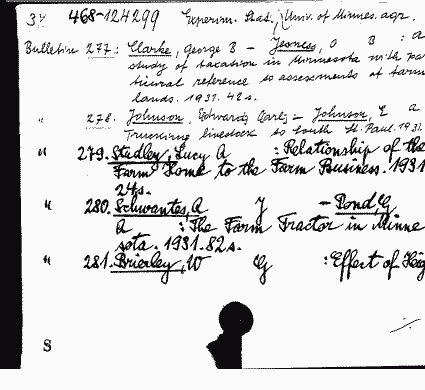 34 468-124299 Experim. Stat., Univ. of Minnes. agr.
Bulletin 277: Clarke, George B - Jesness, O B : a
study of taxation in Minnesota with pa
ticural reference to assessments of farm
lands. 1931. 42 s.
" 278. Johnson, Edwards Carly - Johnson, E a
Trucking livestock to South St. Paul. 1931.
" 279. Studley, Lucy A : Relationship of the
Farm Home to the Farm Business. 1931
24 s.
" 280. Schwantes, A J - Pond, G
A : The Farm Tractor in Minne
sota. 1931. 82 s.
" 281. Brierley, W G : Effect of Hig
S